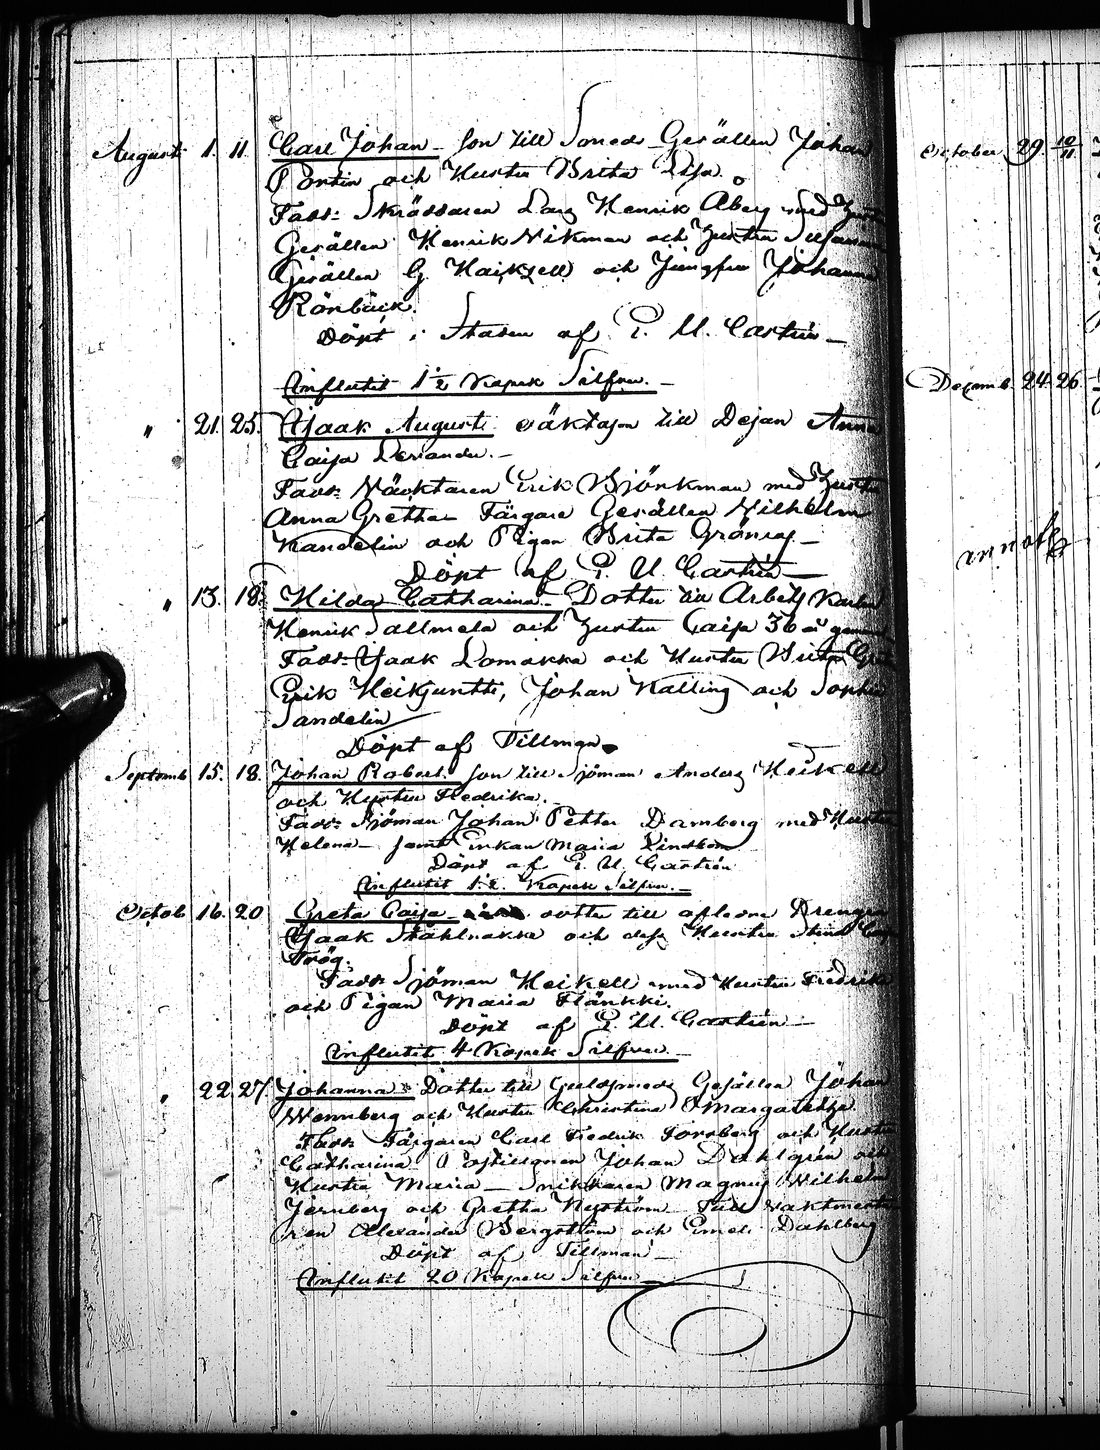 Augusti 1. 11. Carl Johan son till Smeds Gesällen Johan
Pontin och Hustru Brita Lisa.
Fadd: Skräddaren Lars Henrik Åberg med Hustru
Gesällen Henrik Wikman och Hustru Susanna
Gesällen G Haiksell och Jungfru Johanna
Rönbäck.
Döpt i Staden af E. U. Castrén
Influtit 1½ Kopek Silfver.
" 21. 25. Isaak August oäkta son till Dejan Anna
Caisa
Fadd: Näcktaren Erik Björkman med Hustru
Anna Gretha Färgare Gesällen Wilhelm
Kandelin och Pigan Brita Grönroos
Döpt af E. U. Castrén
" 13. 18. Hilda Catharina Dotter till Arbets Karlen
Henrik Sallmela och Hustru Caisa 36 år gammal
Fadd: Isaak Lomakka och Hustru Brita Greta
Erik Heikjuntti, Johan Kalling och Sophia
Sandelin
Döpt af Tillman
Septemb 15. 18. Johan Robert son till Sjöman Anders Heikell
och Hustru Fredrika.
Fadd: Sjöman Johan Petter Damberg med Hustru
Helena samt Enkan Maria Lindbom
Döpt af E. U. Castrén
Influtit 1½ Kopek Silfver.
Octob 16. 20 Greta Caisa dotter till afledne Drengen
Isaak Ståhlnakke och dess Hustru Stina Caisa
Trög.
Fadd: Sjöman Heikell med Hustru Fredrika
och Pigan Maria Flänkki.
Döpt af E. U. Castrén
Influtit 4 Kopek Silfver.
" 22. 27. Johanna Dotter till Guldsmeds Gesällen Johan
Wennberg och Hustru Christina Margaretha.
Fadd: Färgaren Carl Fredrik Forsberg och Hustru
Catharina Postillionen Johan Dahlgrén och
Hustru Maria Snickaren Magnus Wilhelm
Jernberg och Gretha Nyström Tull Vaktmesta
ren Alexander Bergström och Emeli Dahlberg
Döpt af Tillman
Influtit 20 Kopek Silfver
October 29. 10/11
Decemb. 24. 26.